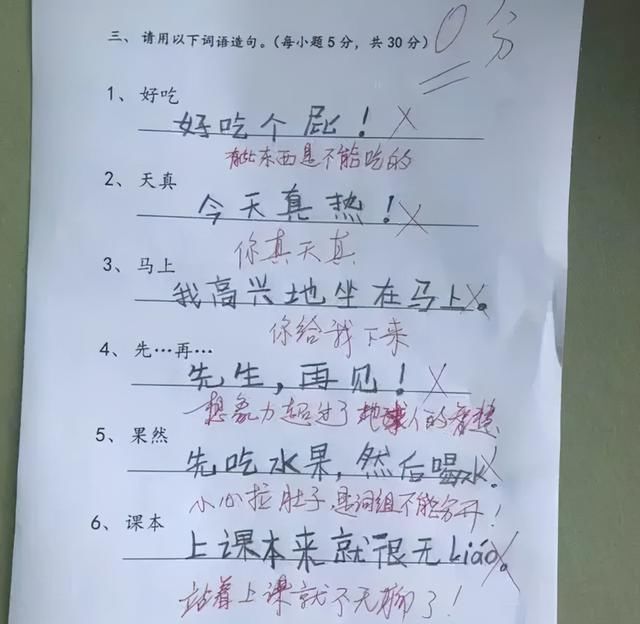 三、请用以下词语造句。(每小题5分，共30分)
0分
1、好吃
好吃个屁！
有些东西是不能吃的
2、天真
今天真热！
你真天真
3、马上
我高兴地坐在马上。
你给我下来
4、先…再…
先生，再见！
想象力超过了地球人的智慧
5、果然
先吃水果，然后喝水。
小心拉肚子，是词组不能分开！
6、课本
上课本来就很无liáo。
站着上课就不无聊了！